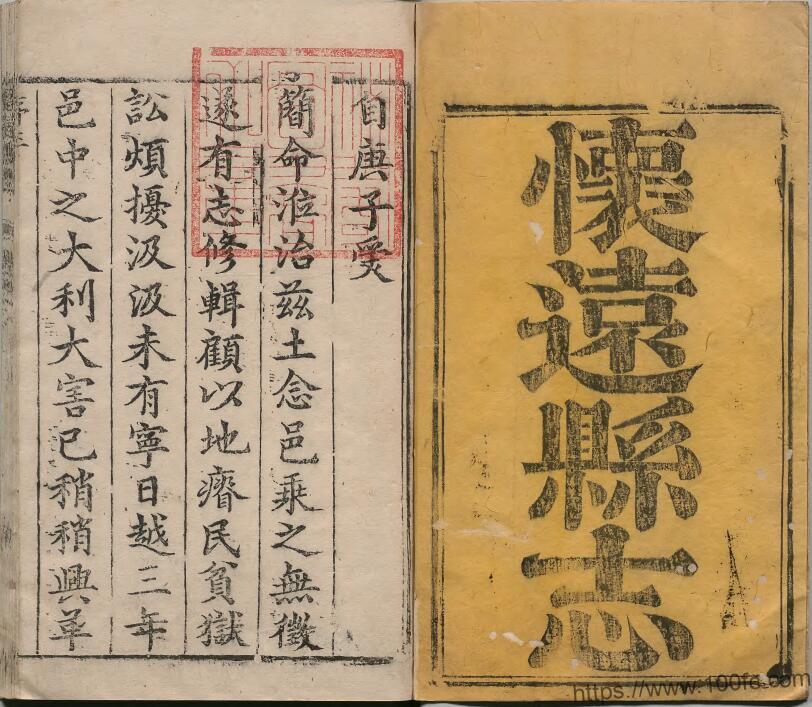 懷遠縣志
自庚子受
簡命涖治兹土念邑乘之無徵
遂有志修輯顧以地瘠民貧獄
訟煩擾汲汲未有寧日越三年
邑中之大利大害已稍稍興革
https://www.100fc.com